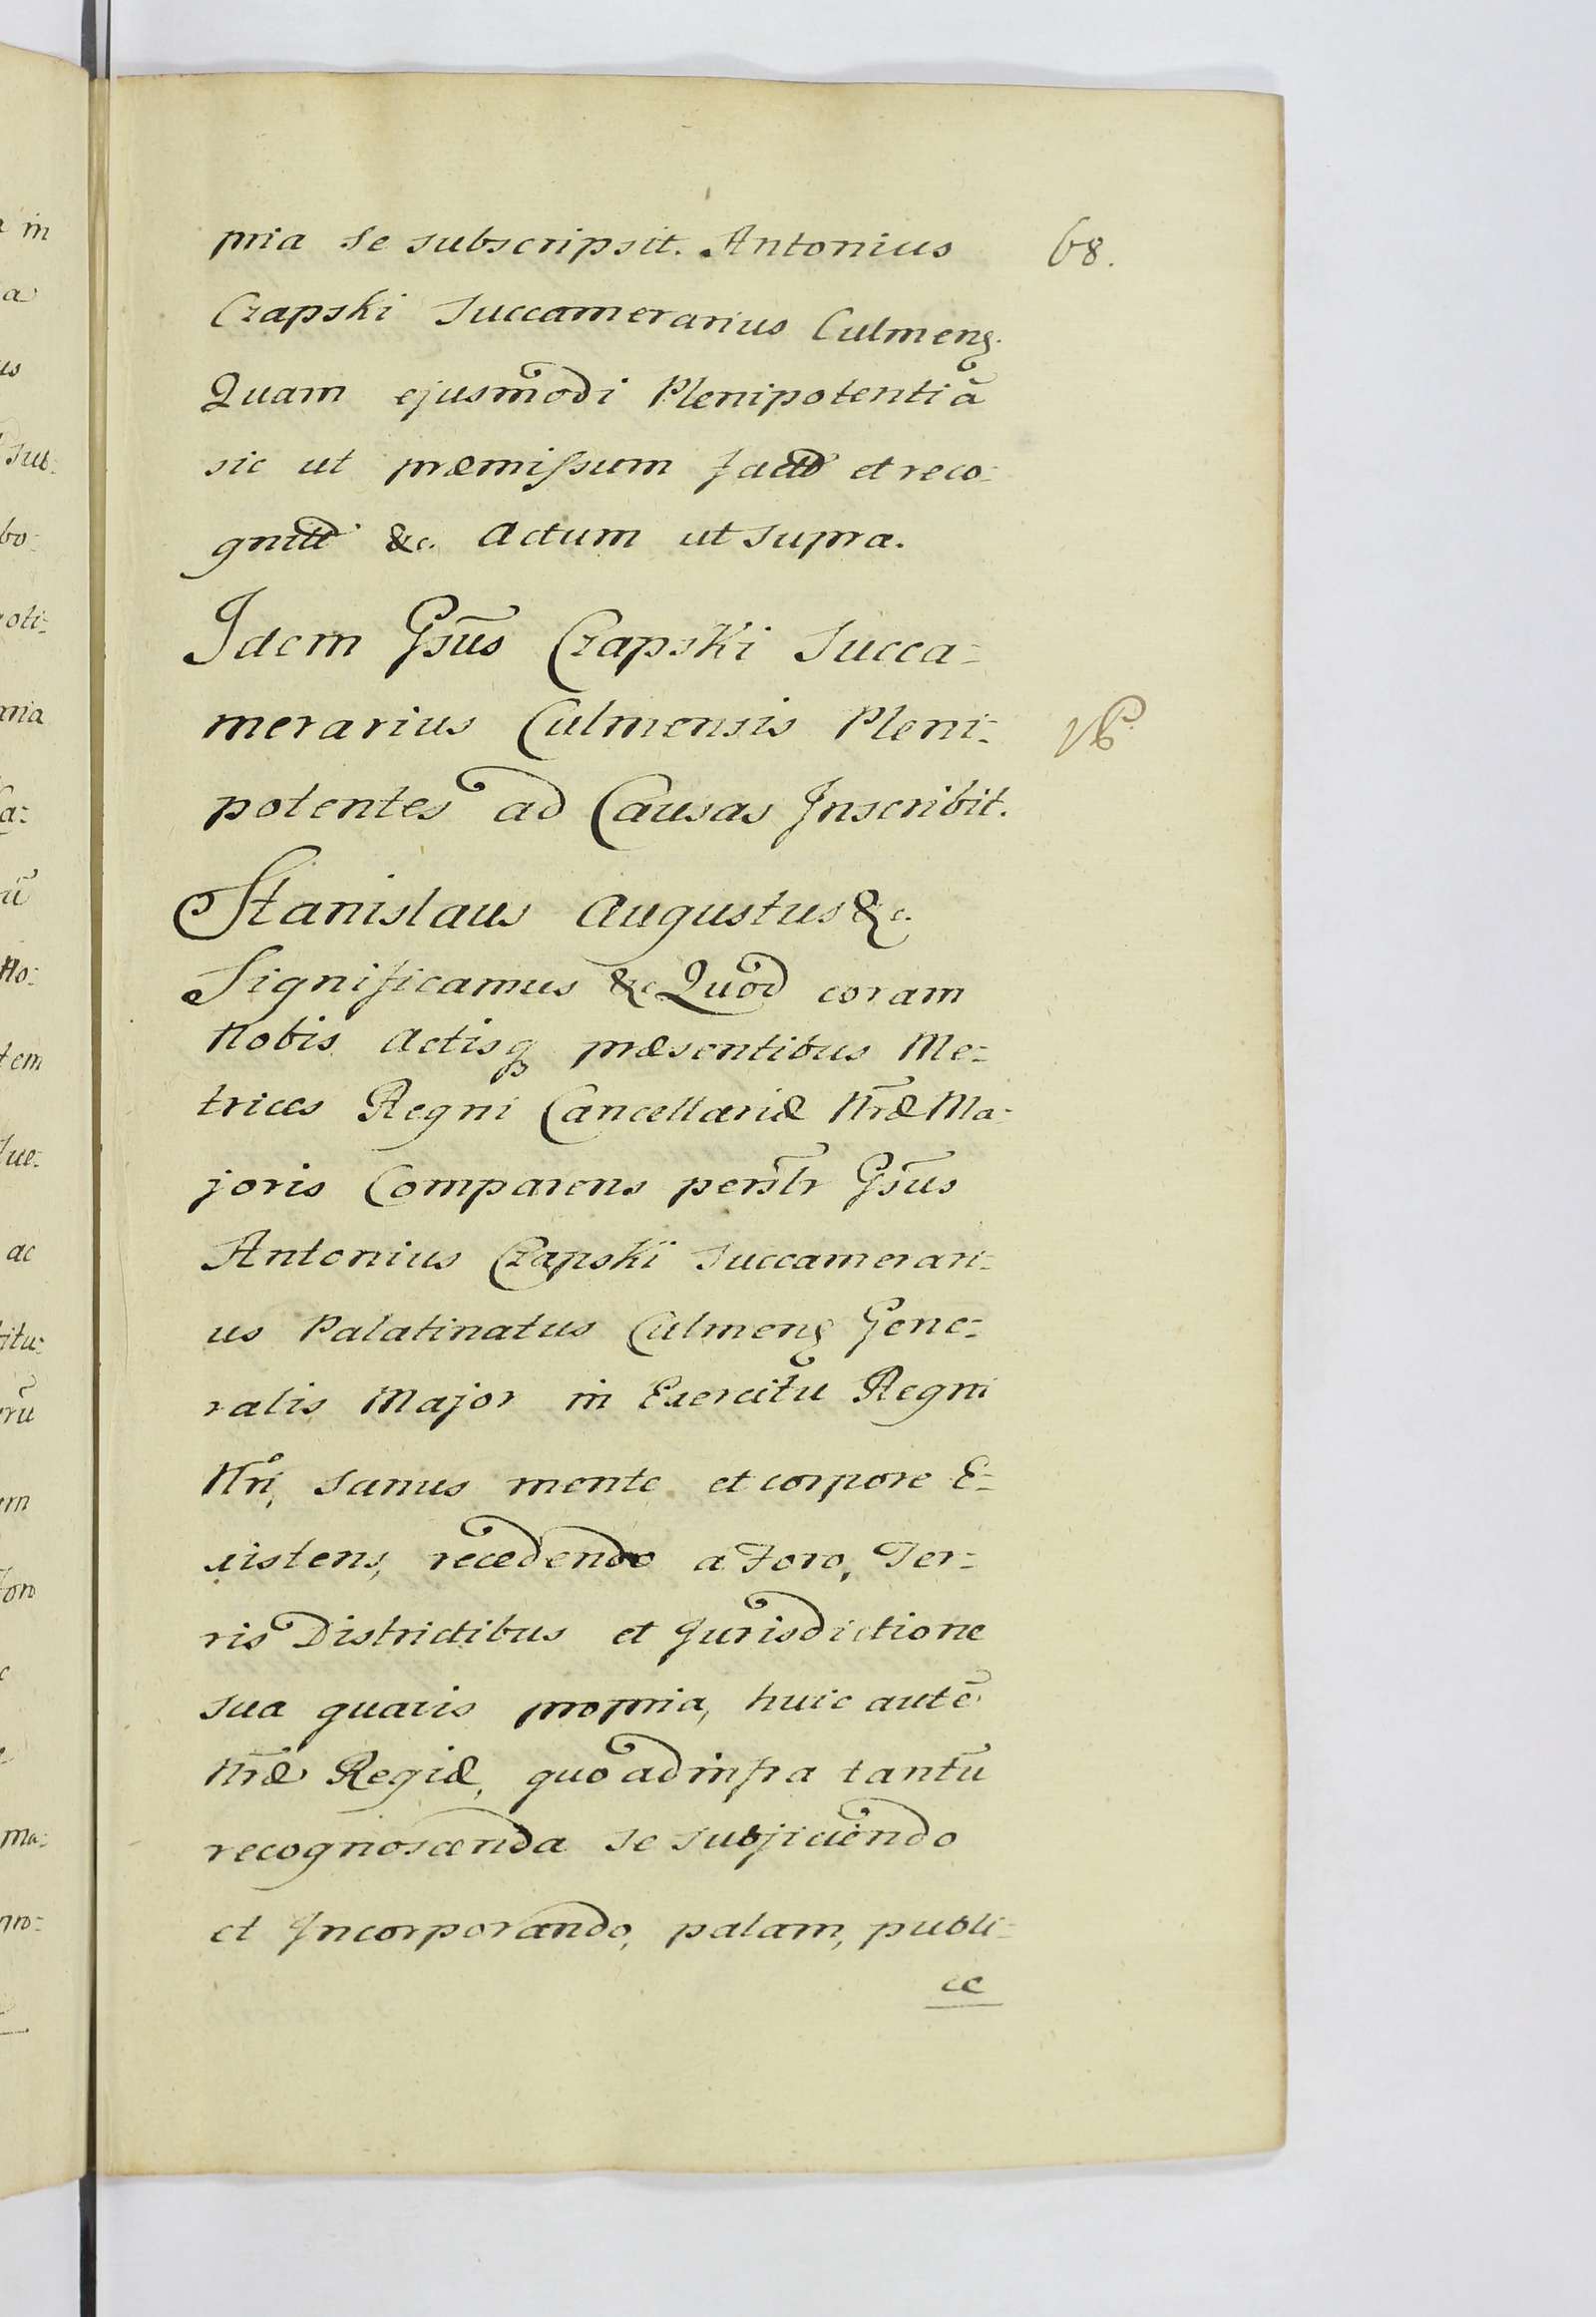 pria se subscripsit. Antonius
68.
Czapski Succamerarius Culmens.
Quam ejusmodi Plenipotentiã
sic ut præmissum factd et reco:
gnitt &c. Actum ut supra.
Idem Gs̃us Czapski Succa:
merarius Culmensis Pleni:
potentes ad Causas Inscribit.
Stanislaus Augustus &c.
Significamus &c Quod coram
Nobis Actisq præsentibus Me:
trices Regni Cancellariæ Nr̃æ Ma:
joris Comparens pers̃lr Gs̃us
Antonius Czapski Succamerari:
us Palatinatus Culmens Gene:
ralis Major in Exercitu Regni
Nri, sanus mente et corpore E:
xistens, recedendo a Foro, Ter:
ris Districtibus et Jurisdictione
sua quavis propria, huic autẽ
Nr̃æ Regiæ, quo ad infra tantũ
recognoscenda se subjiciendo
et Incorporando, palam, publi:
ce
in
a
us
Sub:
bo:
oti:
a:
ũ
No:
tem
ac
itu:
rũ
m
Ma: